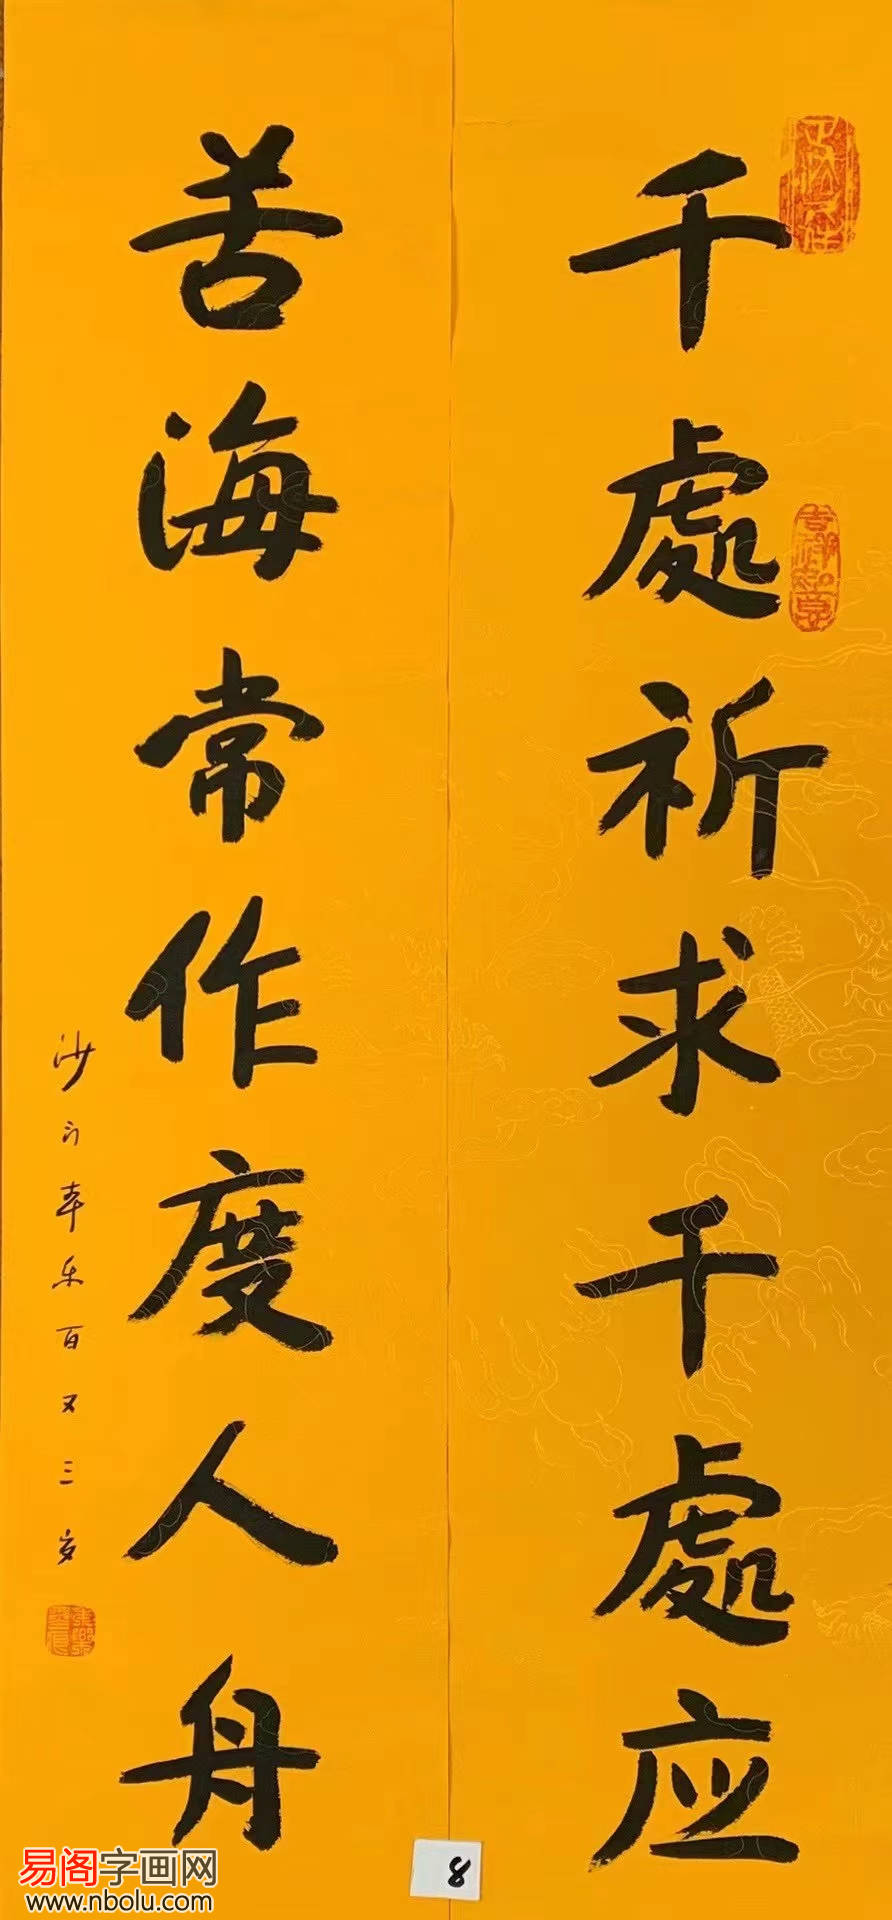 千處祈求千處应
苦海常作度人舟
沙门本乐百又三岁
吉祥如意
8
易阁字画网
www.nbolu.com